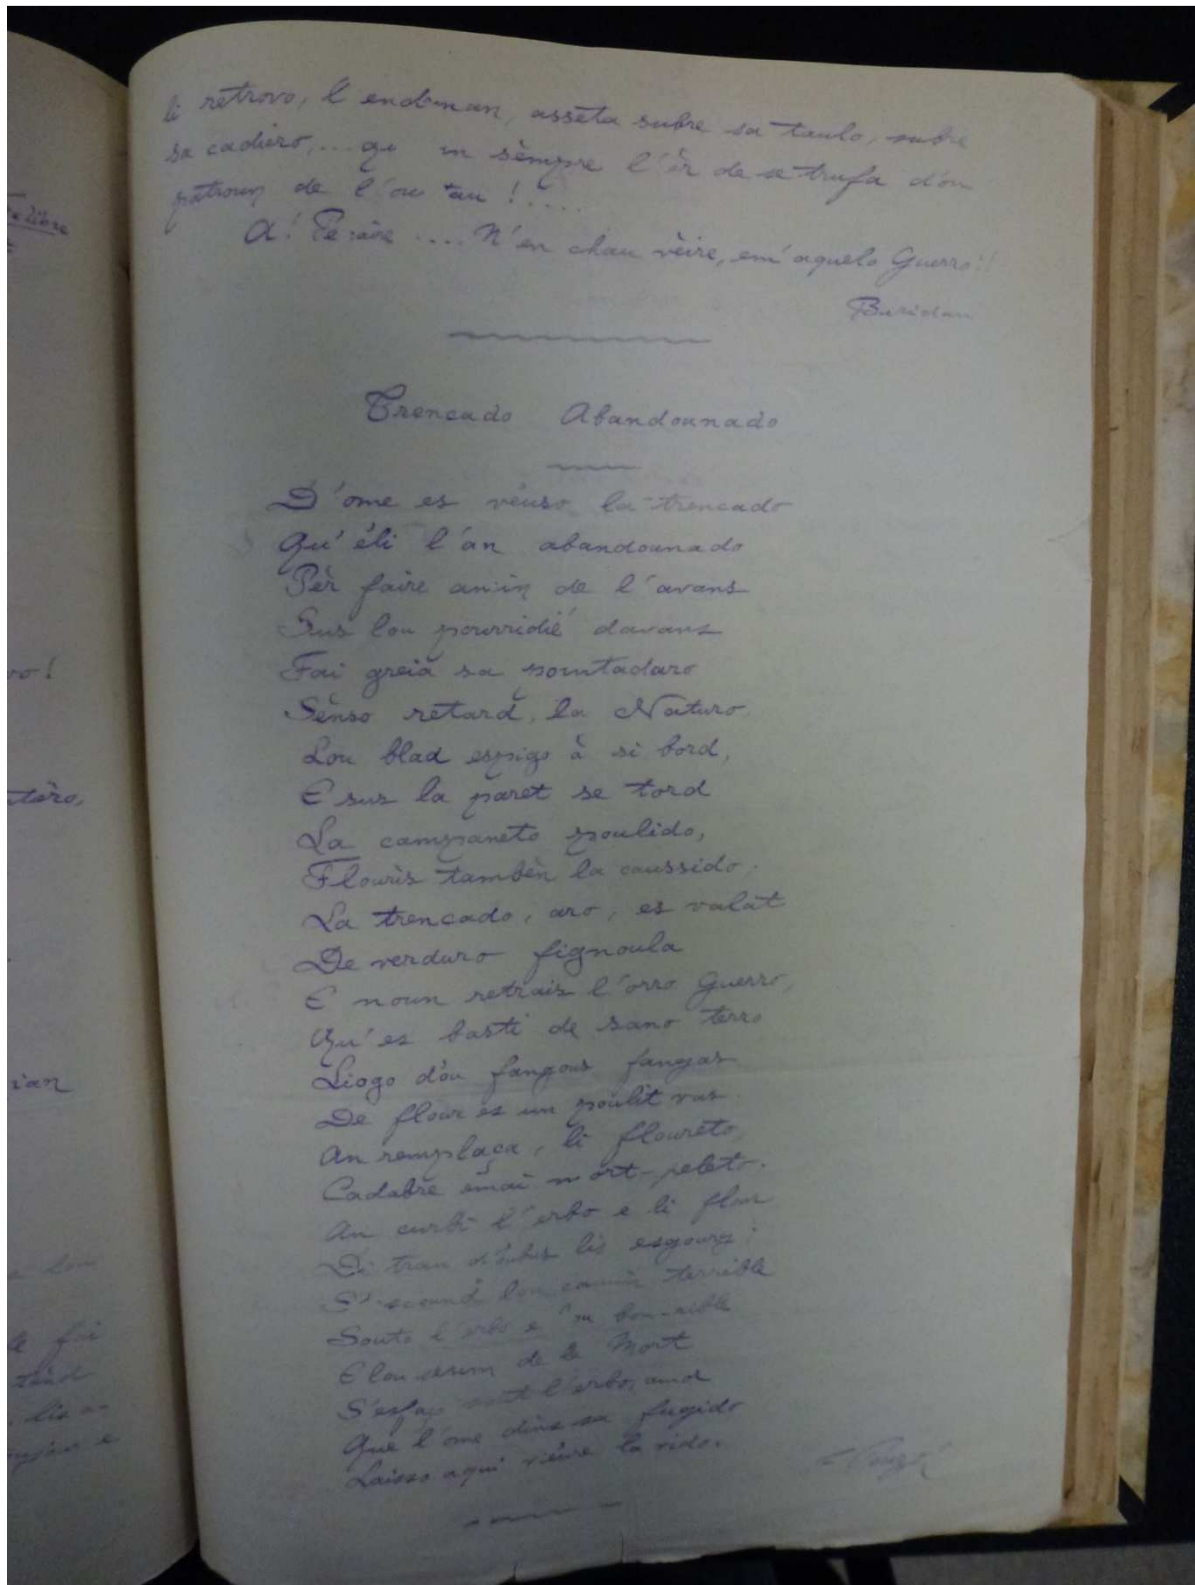 li retrovo, l'endeman, asseta subre sa taulo, subre
sa cadiero, ... qu sèmpre l'èr de se trufa dóu
patroun de l'ou tau !....
A! Pe .... N'en chau vèire, em' aquelo Guerro!!
Buridan
Trencado Abandounado
D'ome es véuso la trencado
Qu'éli l'an abandounado
Pèr faire de l'avans
Sus lou pourridié davans
Fai greià sa pountaduro
Sènso retard, la Naturo.
Lou blad espigo à si bord,
E sus la paret se tord
La campaneto poulido,
Flouris tambèn la caussido.
La trencado, aro, es valat
De verduro fignoula
E noun retrais l'orro Guerro,
Qu'es basti de sano terro
Liogo dóu fangous fangas
De flour es un poulit vas.
An remplaça, li floureto,
Cadabre emai mort-peleto.
An curbi l'erbo e li flour
Di trau d'oubus lis esgourg;
lou camin terrible
Souto l'erbo e
E lou de la Mort
S'esfaço l'erbo,
Que l'ome dins sa fugido
Laisso aqui viéure la vido.